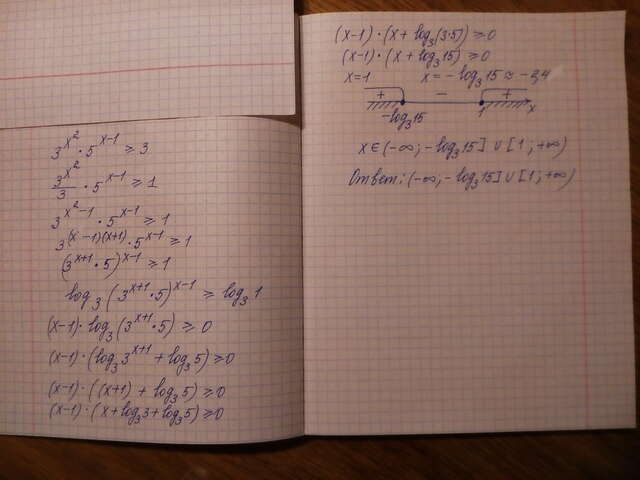 3^(x²) · 5^(x-1) ≥ 3
3^(x²)/3 · 5^(x-1) ≥ 1
3^(x²-1) · 5^(x-1) ≥ 1
3^((x-1)(x+1)) · 5^(x-1) ≥ 1
(3^(x+1) · 5)^(x-1) ≥ 1
log₃(3^(x+1) · 5)^(x-1) ≥ log₃1
(x-1) · log₃(3^(x+1) · 5) ≥ 0
(x-1) · (log₃3^(x+1) + log₃5) ≥ 0
(x-1) · ((x+1) + log₃5) ≥ 0
(x-1) · (x + log₃3 + log₃5) ≥ 0
(x-1) · (x + log₃(3·5)) ≥ 0
(x-1) · (x + log₃15) ≥ 0
x=1 x = -log₃15 ≈ -2,4
+ - +
-log₃15 1 x
x∈(-∞; -log₃15] ∪ [1; +∞)
Ответ: (-∞; -log₃15] ∪ [1; +∞)